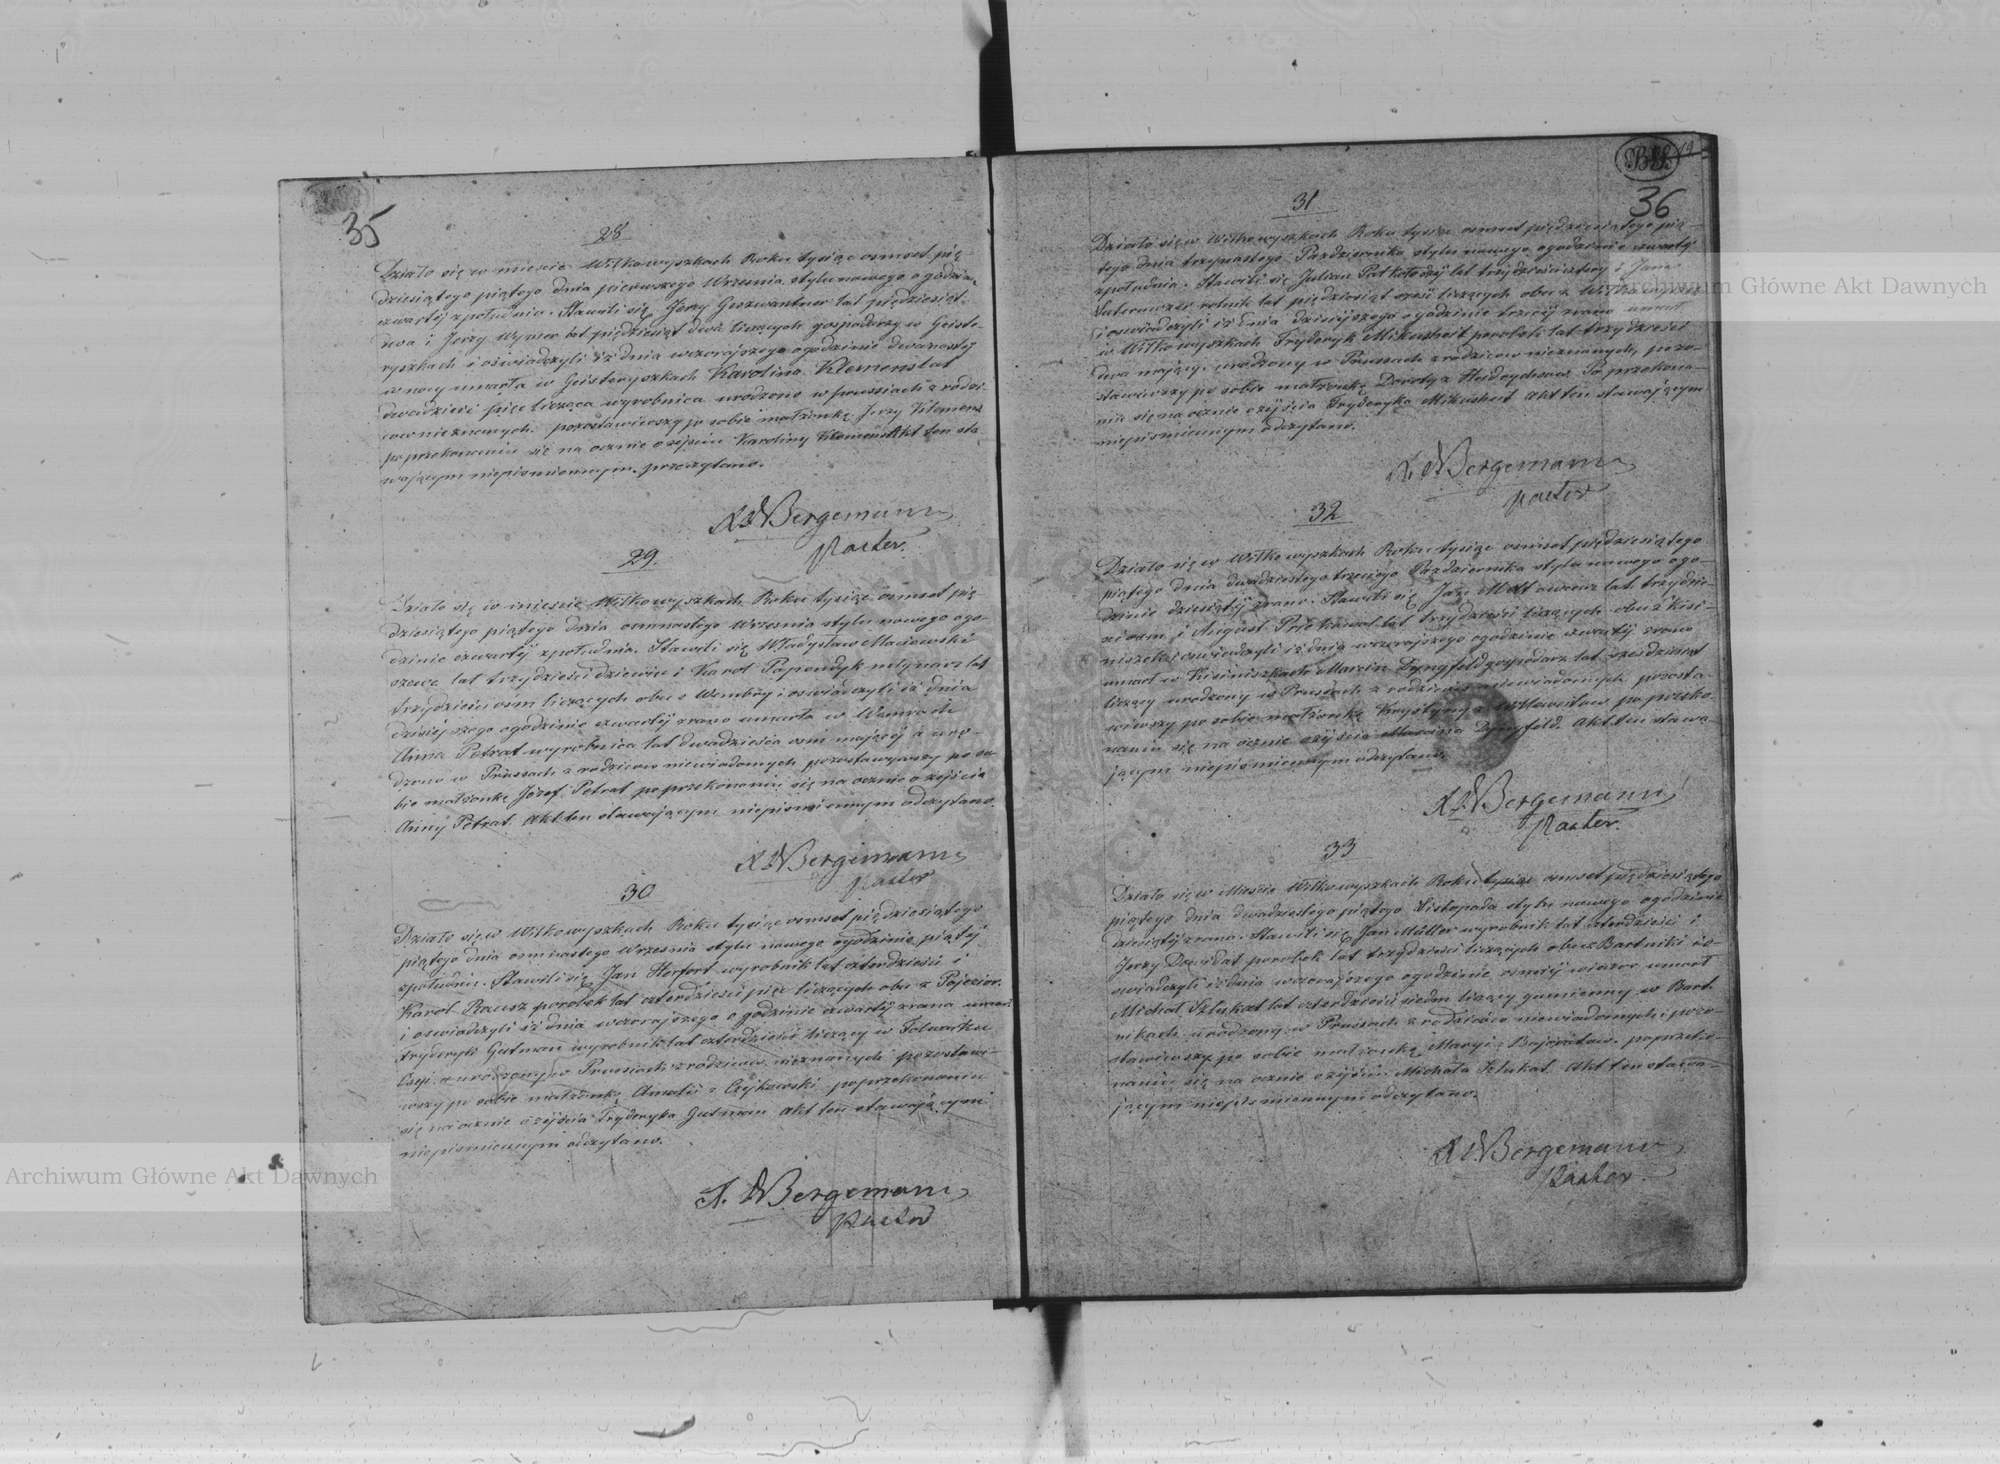 35
28
Działo się w mieście Wiłkowyszkach Roku tysiąc osmset pię-
dziesiątego piątego dnia pierwszego Września stylu nowego o godzinie
czwartéj z południa. Stawili się Jerzy Geszwantner lat pięдziesiąt
i Jerzy Wymer lat pięдziesiąt dwa liczących gospodarzy w Geiste-
ryszkach i oświadczyli iż dnia wczorajszego o godzinie dwunastéj
w nocy umarła w Geisteryszkach Karolina Klemens lat
dwadzieścia pięć licząca wyrobnica urodzona w prussiach z rodzi-
cow nieznanych. pozostawiwszy po sobie małżonka Jerzy Klemens
po przekonaniu się na ocznie o zejściu Karoliny Klemens Akt ten sta-
wającym niepismiennym przeczytano.
Bergemann
Pastor.
29.
Działo się w mieście Wiłkowyszkach Roku tysiąc osmset pię-
dziesiątego piątego dnia osmnastego Września stylu nowego ogo-
dzinie czwartéj z południa. Stawili się Władysław Maciewski
szewc lat trzydzieści dziewięć i Karol Papendyk młynarz lat
trzydzieści osm liczących oba z Wembry i oświadczyli iż dnia
dzisiejszego ogodzinie czwartéj z rana umarła w
Anna Petrat wyrobnica lat dwadzieścia osm mającéj a uro-
dzona w Prussach z rodzicow niewiadomych pozostawywszy po so-
bie małżonka Józef Petrat po przekonaniu się na ocznie o zejściu
Anny Petrat. Akt ten stawającym niepismiennym odczytano.
Bergemann
Pastor
30
Działo się w Wiłkowyszkach Roku tysiąc osmset pięдziesiątego
piątego dnia osmnastego Września stylu nowego ogodzinie piątéj
z południa. Stawili się Jan Herfort wyrobnik lat czterdzieści i
Karol Rausz parobek lat czterdzieści pięć liczących oba z Pojezior.
i oswiadczyli iż dnia wczorajszego o godzinie czwartéj z rana umarł
fryderyk Gutman wyrobnik lat czterdzieści liczący w Folwarku
urodzony w Prussiach z rodzicow nieznanych pozostawi-
wszy po sobie małżonkę Amalii z po przekonaniu
się na ocznie o zejściu Fryderyka Gutman Akt ten stawającymi
niepismiennym odczytano.
Bergemann
Pastor
36
31
Działo się w Wiłkowyszkach Roku tysiąc osmset pięдziesiątego pią-
tego dnia trzynastego Października stylu nowego ogodzinie czwartéj
z południa. Stawili się Julian lat trzydzieści cztery i Jan
rolnik lat pięдziesiąt liczących oba z Wiłkowyszek
i oswiadczyli iż dnia dzisiejszego ogodzinie trzeciéj z rana umarł
w Wiłkowyszkach Fryderyk Mikuszeit parobek lat trzydzieści
dwa mający, urodzony w Prussach z rodzicow nieznanych, pozo-
stawiwszy po sobie małżonkę Dorotę z Po przekona-
niu się na ocznie o zejściu Fryderyka Mikuszeit Akt ten stawającym
niepismiennym odczytano.
Bergemann
Pastor
32
Działo się w Wiłkowyszkach Roku tysiąc osmset pięдziesiątego
piątego dnia dwudziestego trzeciego Października stylu nowego ogo-
dzinie dziesiątéj z rana. Stawili się Jan lat trzydzie-
ści osm i August lat trzydzieści liczących oba z Kisi-
niszek i oswiadczyli iż dnia wczorajszego ogodzinie czwartéj z rana
umarł w Kisiniszkach Marcin Dyngfeld gospodarz lat sześdziesiąt
liczący urodzony w Prussach z rodzicow niewiadomych pozosta-
wiwszy po sobie małżonkę Krystynę z po przeko-
naniu się na ocznie o zejściu Marcina Dyngfeld. Akt ten stawa-
jącym niepismiennym odczytano.
Bergemann
Pastor.
33
Działo się w Mieście Wiłkowyszkach Roku tysiąc osmset pięдziesiątego
piątego dnia dwudziestego piątego Listopada stylu nowego ogodzinie
dziesiątéj z rana. Stawili się Jan Müller wyrobnik lat czterdzieści i
Jerzy Dawidat parobek lat trzydzieści liczących oba z Bartniki i o-
swiadczyli iż dnia wczorajszego ogodzinie osméj wieczor umarł
Michał Szlukat lat czterdzieści siedm liczący gumienny w Bart-
nikach urodzony w Prussach z rodzicow niewiadomych i pozo-
stawiwszy po sobie małżonkę Maryi z po przeko-
naniu się na ocznie o zejściu Michała Szlukat. Akt ten stawa-
jącym niepismiennym odczytano.
Bergemann
Pastor.
Archiwum Główne Akt Dawnych
Archiwum Główne Akt Dawnych